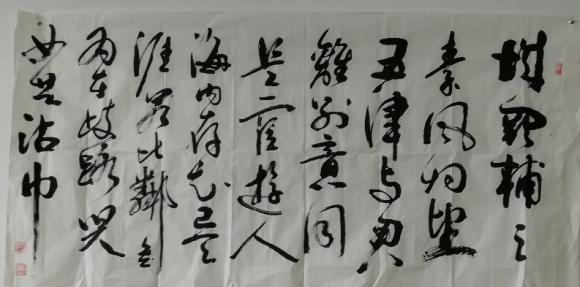 城闕輔三
秦风烟望
五津与君
離别意同
是宦遊人
海内存知己天
涯若比鄰無
为在歧路児
女共沾巾